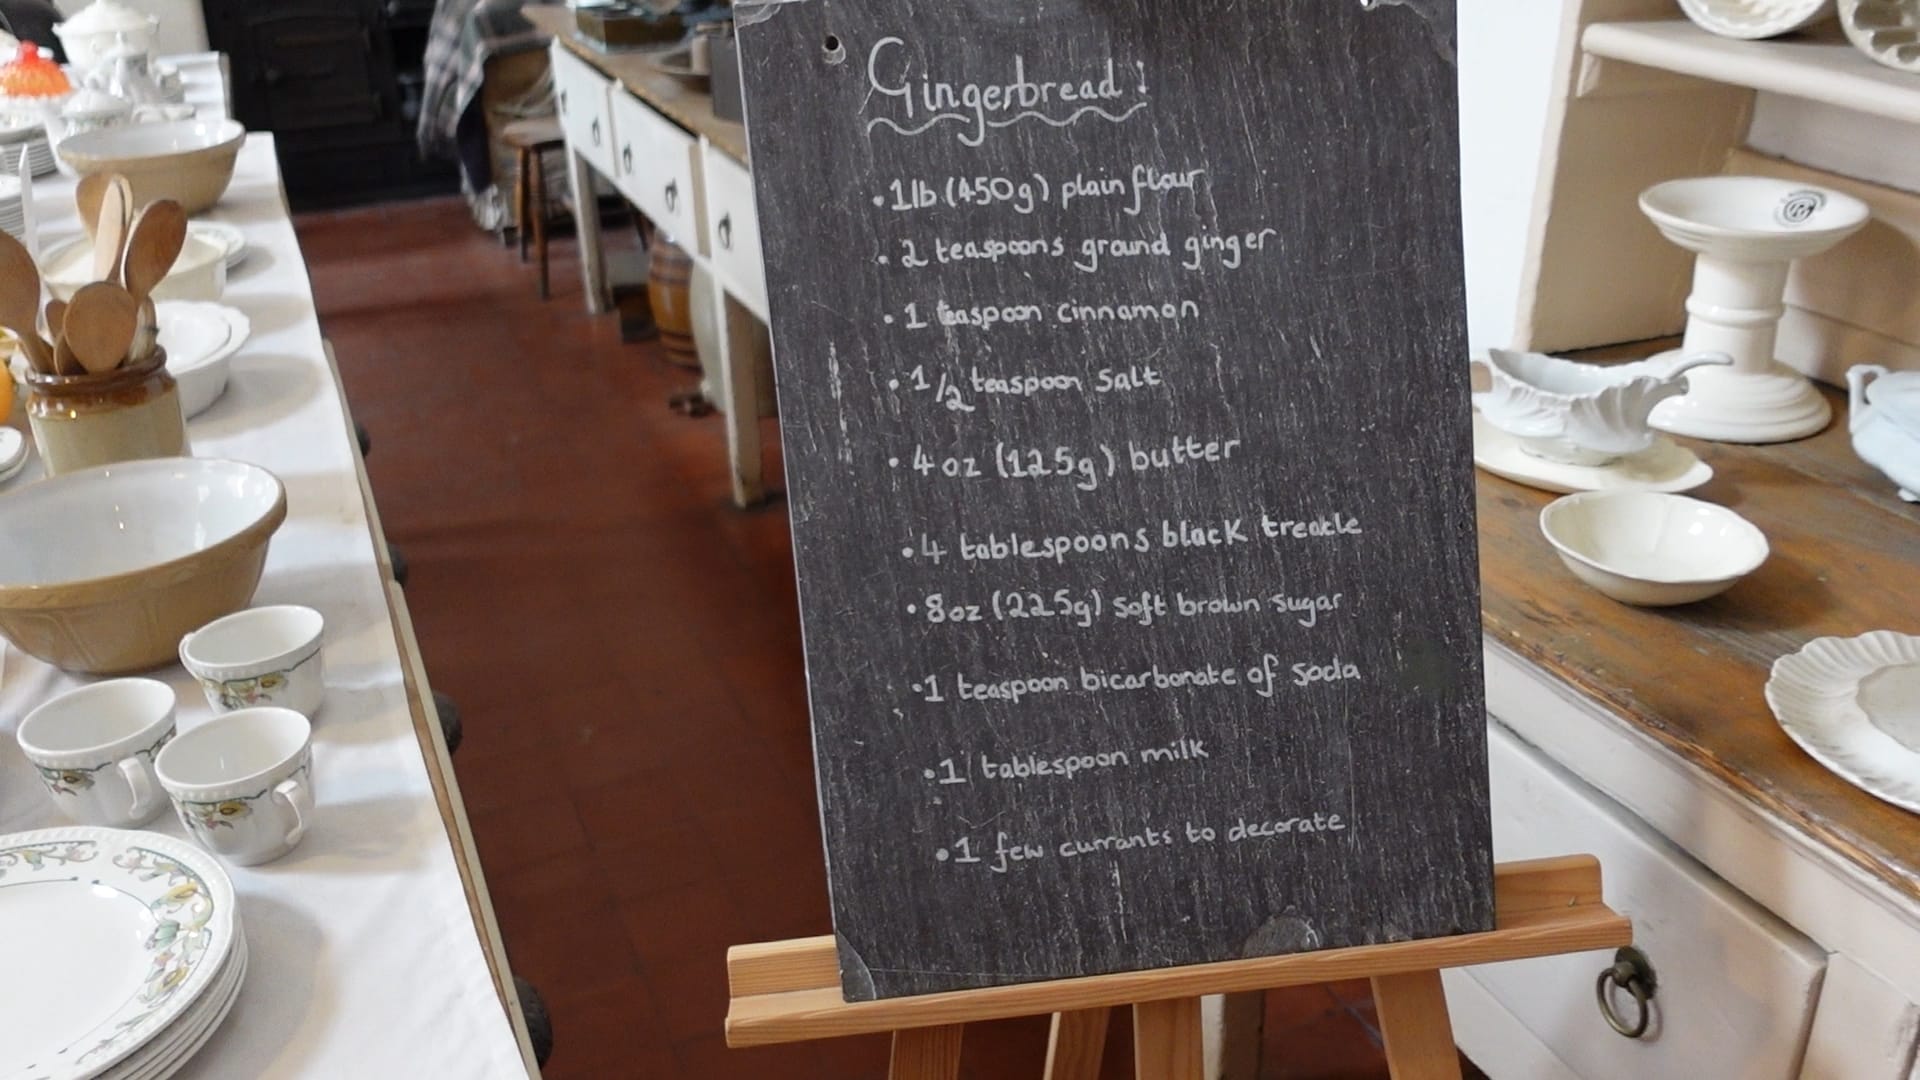 Gingerbread:
• 1lb (450g) plain flour
• 2 teaspoons ground ginger
• 1 teaspoon cinnamon
• 1/2 teaspoon salt
• 4 oz (125g) butter
• 4 tablespoons black treacle
• 8oz (225g) soft brown sugar
• 1 teaspoon bicarbonate of soda
• 1 tablespoon milk
• 1 few currants to decorate